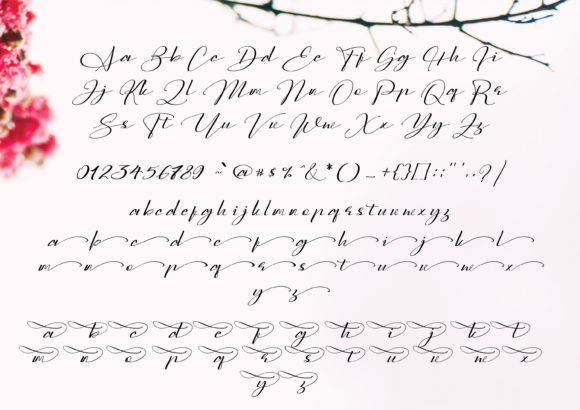 Aa Bb Cc Dd Ee Ff Gg Hh Ii
Jj Kk Ll Mm Nn Oo Pp Qq Rr
Ss Tt Uu Vv Ww Xx Yy Zz
0123456789 ~`@#$%^&*()_-+{}[]:;"',.?/|
abcdefghijklmnopqrstuvwxyz
a b c d e f g h i j k l
m n o p q r s t u v w x
y z
a b c d e f g h i j k l
m n o p q r s t u v w x
y z